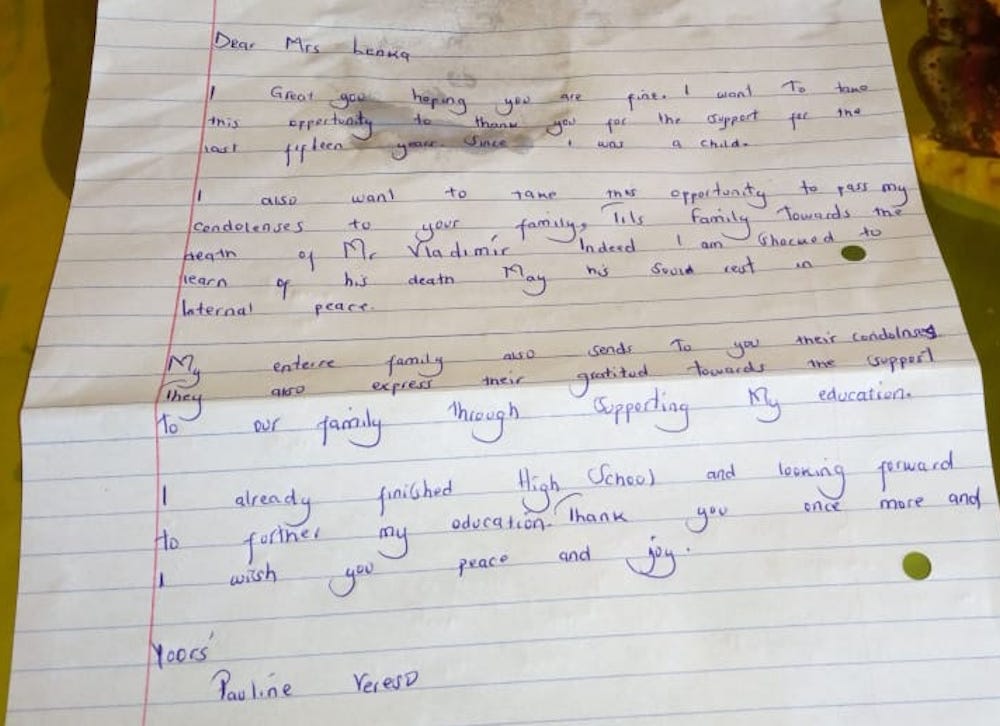 Dear Mrs Lenka
I Great you hoping you are fine. I want To take
this opportunity to thank you for the support for the
last fifteen years. Since I was a child.
I also want to take this opportunity to pass my
condolenses to your family, Tils family Towards the
death of Mr Vladimír Indeed I am Shocked to
learn of his death May his Sould rest in
Internal peace.
My enterre family also sends To you their condolnses
They also express their gratitud towards the support
To our family Through Supporting My education.
I already finished High School and looking forward
to forther my education. Thank you once more and
I wish you peace and joy.
Yoors'
Pauline Vereso